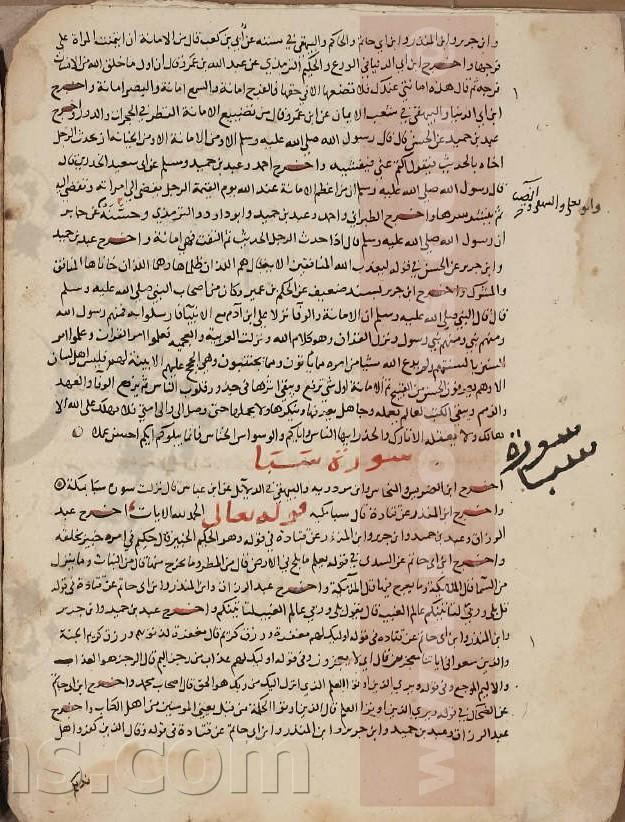 وابن جرير وابن المنذر وابن أبي حاتم والحاكم والبيهقي في سننه عن أبي بن كعب قال من الامانة ان ايتمنت المراة على
فرجها واخرج ابن أبي الدنيا في الورع والحكيم الترمذي عن عبد الله بن عمرو قال اول ما خلق الله من الانسان
فرجه ثم قال هذه امانتي عندك فلا تضعها الا في حقها فالفرج امانة والسمع امانة والبصر امانة واخرج
ابن أبي الدنيا والبيهقي في شعب الايمان عن ابن عمرو قال من تضييع الامانة النظر في الحجرات والدور واخرج
عبد بن حميد عن الحسن قال قال رسول الله صلى الله عليه وسلم الا ومن الامانة الا ومن الخيانة ان يحدث الرجل
اخاه بالحديث فيقول اكتم عني فيفشيه واخرج احمد وعبد بن حميد ومسلم عن ابي سعيد الخدري قال
قال رسول الله صلى الله عليه وسلم ان من اعظم الامانة عند الله يوم القيمة الرجل يفضي الى امراته وتفضي اليه
ثم ينشر سرها واخرج الطبراني واحمد وعبد بن حميد وابو داود والترمذي وحسنه عن جابر
وابو يعلى والبيهقي
ان رسول الله صلى الله عليه وسلم قال اذا حدث الرجل الحديث ثم التفت فهي امانة واخرج عبد بن حميد
وابن جرير عن الحسن في قوله ليعذب الله المنافقين الاية قال هم اللذان ظلماها وهما اللذان خاناها المنافق
والمشرك واخرج ابن جرير بسند ضعيف عن الحكم بن عمير وكان من اصحاب النبي صلى الله عليه وسلم
قال قال النبي صلى الله عليه وسلم ان الامانة والوفا نزلا على ابن ادم مع الانبيا فارسلوا به فمنهم رسول الله
ومنهم نبي ومنهم نبي رسول ونزل القران وهو كلام الله ونزلت العربية والعجمية فعلموا امر القران وعلموا امر
السنن بالسنتهم ولم يدع الله شيا من امره مما ياتون ومما يجتنبون وهي الحجج عليهم الا بينه لهم فليس اهل لسان
الا وهم يعرفون الحسن من القبيح ثم الامانة اول شي يرفع ويبقى اثرها في جذور قلوب الناس ثم يرفع الوفا والعهد
والذمم وتبقى الكتب فعالم يعمله وجاهل يعرفها وينكرها ولا يحملها حتى وصل الي والى امتي فلا يهلك على الله الا
هالك ولا يغفله الا تارك والحذر ايها الناس واياكم والوسواس الخناس فانما يبلوكم ايكم احسن عملا
سورة سبا
سورة
سبا
اخرج ابن الضريس والنحاس وابن مردويه والبيهقي في الدلايل عن ابن عباس قال نزلت سورة سبا بمكة
واخرج ابن المنذر عن قتادة قال سبا مكية قوله تعالى الحمد لله الايات اخرج عبد
الرزاق وعبد بن حميد وابن جرير وابن المنذر عن قتادة في قوله وهو الحكيم الخبير قال حكيم في امره خبير بخلقه
واخرج ابن ابي حاتم عن السدي في قوله يعلم ما يلج في الارض قال من المطر وما يخرج منها قال من النبات وما ينزل
من السما قال الملايكة وما يعرج فيها قال الملايكة واخرج عبد الرزاق وابن المنذر وابن ابي حاتم عن قتادة في قوله
قل بلى وربي لتاتينكم عالم الغيب قال يقول بلى وربي عالم الغيب لتاتينكم واخرج عبد بن حميد وابن جرير
وابن المنذر وابن ابي حاتم عن قتادة في قوله اوليك لهم مغفرة ورزق كريم قال مغفرة لذنوبهم ورزق كريم الجنة
والذين سعوا في اياتنا معجزين قال اي لا يعجزون وفي قوله اوليك لهم عذاب من رجز اليم قال الرجز هو العذاب
والاليم الموجع وفي قوله ويرى الذين اوتوا العلم الذي انزل اليك من ربك هو الحق قال اصحاب محمد واخرج ابن ابي حاتم
عن الضحاك في قوله ويرى الذين اوتوا العلم قال الذين اوتوا الحكمة من قبل يعني المومنين من اهل الكتاب واخرج
عبد الرزاق وعبد بن حميد وابن جرير وابن المنذر وابن ابي حاتم عن قتادة في قوله وقال الذين كفروا هل
ندلكم
ns.com